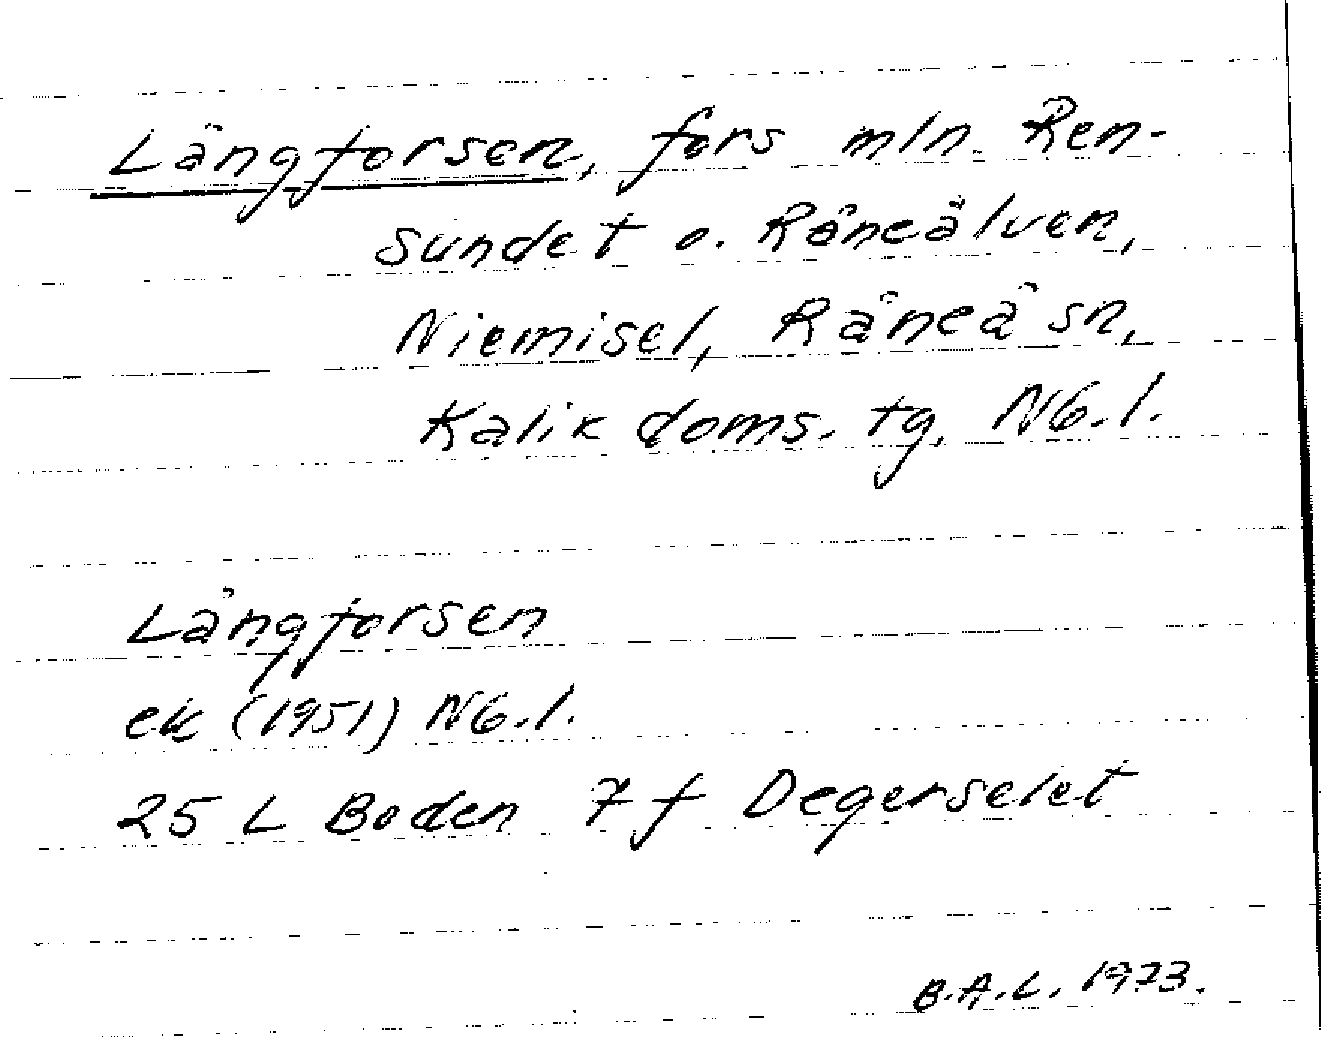 Långforsen, fors mln. Ren-
sundet o. Råneälven,
Niemisel, Råneå sn,
Kalix doms. tg. Nb. l.
Långforsen
ek (1951) Nb. l.
25 L Boden 7 f Degerselet
B.A.L. 1973.